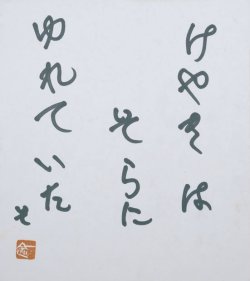 けやきは
そらに
ゆれていた